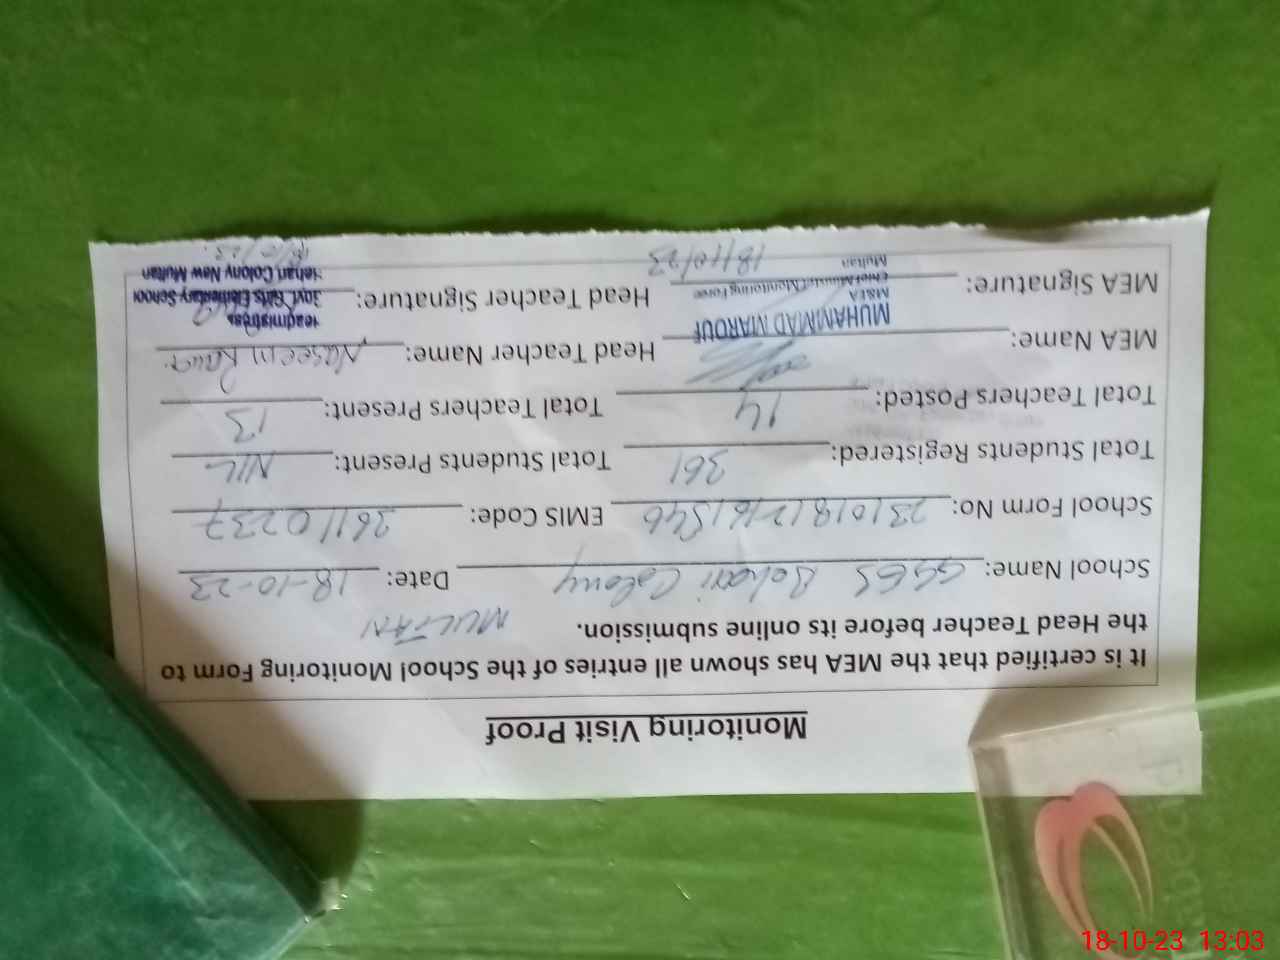 Monitoring Visit Proof
It is certified that the MEA has shown all entries of the School Monitoring Form to
the Head Teacher before its online submission. MULTAN
School Name: GGES Behari Colony Date: 18-10-23
School Form No: EMIS Code: 36110237
Total Students Registered: 361 Total Students Present: NIL
Total Teachers Posted: 14 Total Teachers Present: 13
MEA Name: MUHAMMAD MAROUF Head Teacher Name: Naseem
M&EA
Chief Minister Monitoring Force
Multan
MEA Signature: 18/10/23 Head Teacher Signature:
eadmistress
Govt. Girls Elementary School
ehari Colony New Multan
18/10/23
18-10-23 13:03